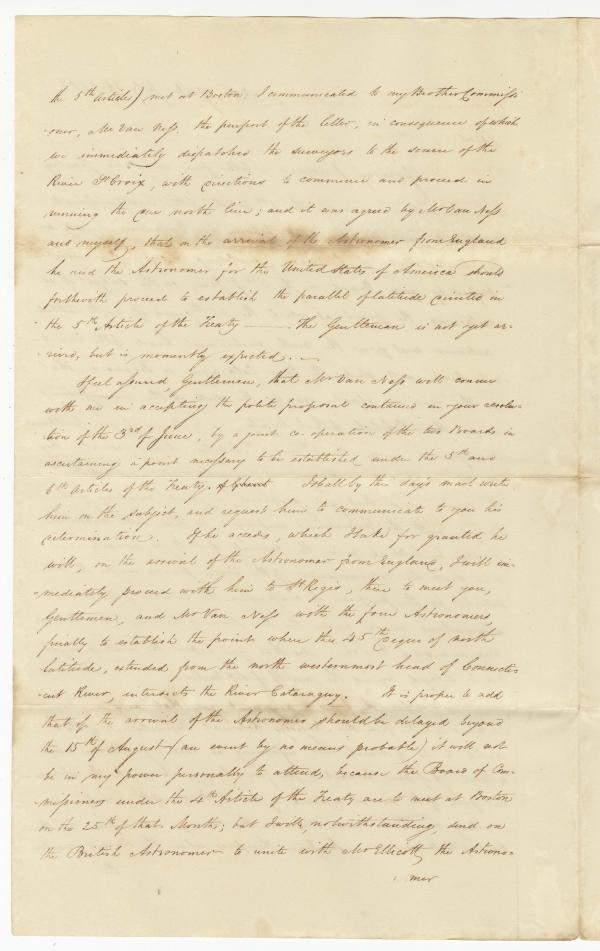 the 5th Articles) met at Boston, I communicated to my Brother Commissi-
-oner, Mr Van Ness, the purport of the letter, in consequence of which
we immediately dispatched the surveyors to the source of the
River St Croix, with directions to commence and proceed in
running the due north line; and it was agreed by Mr Van Ness
and myself, that on the arrival of the Astronomer from England
he and the Astronomer for the United States of America should
forthwith proceed to establish the parallel of latitude directed in
the 5th Article of the Treaty —— The Gentleman is not yet ar-
-rived, but is momently expected. —
I feel assured, Gentlemen, that Mr Van Ness will concur
with me in accepting the polite proposal contained in your resolu-
-tion of the 3rd of June, by a joint co-operation of the two Boards in
ascertaining a point necessary to be established under the 5th and
6th Articles of the Treaty of Ghent I shall by this day's mail write
him on the subject, and request him to communicate to you his
determination. If he accedes, which I take for granted he
will, on the arrival of the Astronomer from England, I will im-
-mediately proceed with him to St Regis, there to meet you,
Gentlemen, and Mr Van Ness with the four Astronomers,
finally to establish the point where the 45th degree of north
latitude, extended from the north westernmost head of Connecti-
-cut River, intersects the River Cataraguy. It is proper to add
that if the arrival of the Astronomer should be delayed beyond
the 15th of August (an event by no means probable) it will not
be in my power personally to attend, because the Board of Com-
-missioners under the 4th Article of the Treaty are to meet at Boston
on the 25th of that Month; but I will, notwithstanding, send on
the British Astronomer to unite with Mr Ellicott, the Astrono-
mer